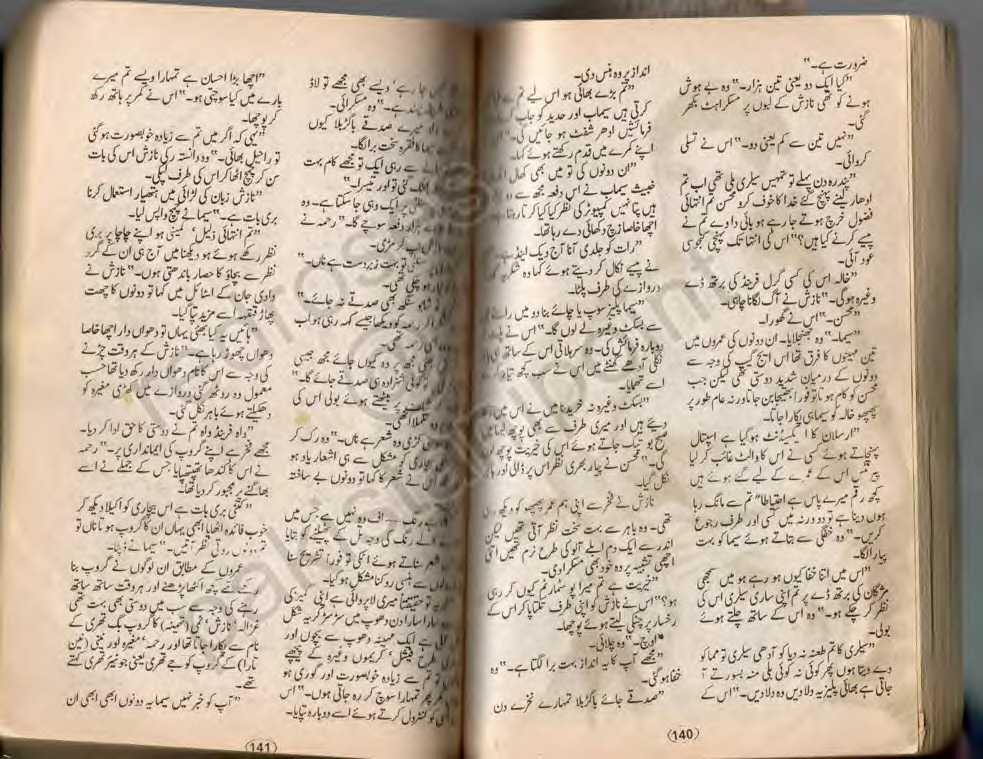 ضرورت ہے۔"
"کیا ایک دو یعنی تین ہزار۔" وہ بے ہوش
ہونے کو تھی نازش کے لبوں پر مسکراہٹ بکھر
گئی۔
"نہیں تین سے کم یعنی دو۔" اس نے تسلی
کروائی۔
"پندرہ دن پہلے تو تمہیں سیلری ملی تھی اب تم
ادھار لینے پہنچ گئے خدا کا خوف کرو محسن تم انتہائی
فضول خرچ ہوتے جا رہے ہو بائی داوے تم نے
پیسے کرنے کیا ہیں؟" اس کی انتہا تک پہنچی کنجوسی
عود آئی۔
"خالہ اس کی کسی گرل فرینڈ کی برتھ ڈے
وغیرہ ہو گی۔" نازش نے آگ لگانا چاہی۔
"محسن۔" اس نے گھورا۔
"سیما۔" وہ جھنجلایا۔ ان دونوں کی عمروں میں
تین مہینوں کا فرق تھا اس ایج گیپ کی وجہ سے
دونوں کے درمیان شدید دوستی تھی لیکن جب
محسن کو کام ہوتا تو فورا بھتیجا بن جاتا ورنہ عام طور پر
پھپھو خالہ کو سیما ہی پکارا جاتا۔
"ارسلان کا ایکسیڈنٹ ہو گیا ہے اسپتال
پہنچاتے ہوئے کسی نے اس کا والٹ غائب کر لیا
اس کے عمرے کے لیے گئے ہوئے ہیں
کچھ رقم میرے پاس ہے احتیاطاً تم سے مانگ رہا
ہوں دینا ہے تو دو ورنہ میں کسی اور طرف رجوع
کریں۔" وہ خفگی سے بتاتے ہوئے سیما کو بہت
پیارا لگا۔
"اس میں اتنا خفا کیوں ہو رہے ہو میں سمجھی
مژگان کی برتھ ڈے پر تم اپنی ساری سیلری اس کی
نظر کر چکے ہو۔" وہ اس کے ساتھ چلتے ہوئے
بولی۔
"سیلری کا تم طعنہ نہ دیا کرو آدھی سیلری تو مما کو
دے دیتا ہوں پھر کوئی نہ کوئی بلی منہ بسورتے آ
جاتی ہے بھائی پلیز یہ دلا دیں وہ دلا دیں۔" اس کے
140
انداز پر وہ ہنس دی۔
"تم بڑے بھائی ہو اس لیے تم
کرتی ہیں سیماب اور حدید کو جاب
فرمائشیں ادھر شفٹ ہو جائیں گی۔"
اپنے کمرے میں قدم رکھتے ہوئے کہا۔
"ان دونوں کی تو میں بھی کھال
خبیث سیماب نے اس دفعہ مجھ سے دو
ہیں پتا نہیں کمپیوٹر کی نظر کیا کیا کرتا رہتا
اچھا خاصا زچ دکھائی دے رہا تھا۔
"رات کو جلدی آنا آج ویک اینڈ ہے۔"
نے پیسے نکال کر دیتے ہوئے کہا وہ شکریہ
دروازے کی طرف پلٹا۔
"سیما پلیز سوپ یا چائے بنا دو میں راستے
سے بسکٹ وغیرہ لے لوں گا۔" اس نے
دوبارہ فرمائش کی۔ وہ سر ہلاتی اس کے ساتھ
نکلی آدھے گھنٹے میں اس نے سب کچھ تیار
اسے تھمایا۔
"بسکٹ وغیرہ نہ خریدنا میں نے اس میں
دیے ہیں اور میری طرف سے بھی پوچھ لینا میں
صبح بوتیک جاتے ہوئے اس کی خیریت پوچھ لوں
گی۔" محسن نے پیار بھری نظر اس پر ڈالی اور باہر
نکل گیا۔
نازش نے فخر سے اپنی ہم عمر پھپھو کو دیکھ رہی
تھی۔ وہ باہر سے بہت سخت نظر آتی تھیں لیکن
اندر سے ایک دم ابلے آلو کی طرح نرم تھیں اتنی
اچھی تشبیہ پر وہ خود بھی مسکرا دی۔
"خیریت ہے تم میرا پوسٹمارٹم کیوں کر رہی
ہو؟" اس نے نازش کو اپنی طرف تکتا پا کر اس کے
رخسار پر چٹکی لیتے ہوئے پوچھا۔
"اوچ۔" وہ چلائی۔
"مجھے آپ کا یہ انداز بہت برا لگتا ہے۔" وہ
خفا ہو گئی۔
"صدقے جائے باکڑبلا تمہارے نخرے دن
جا رہے' ویسے بھی مجھے تو لاڈ
پسند ہے۔" وہ مسکرائی۔
میرے صدقے باکڑبلا کیوں
سا فقرہ سخت برا لگا۔
سے رہی ایک تو مجھے کام بہت
گئی تو اور تیسرا۔"
پر ایک وہی جا سکتا ہے۔ وہ
ہزار دفعہ سوچے گا۔" رحمہ نے
کر مڑی۔
تو بہت زبردست ہے ناں۔"
ہو چکی تھی۔
سنگھ بھی صدقے نہ جائے۔"
رحمہ کو دیکھا جیسے کہہ رہی ہو اب
رحمہ تھی۔
مجھ پر وہ کیوں جائے مجھ جیسی
کوئی شہزادہ ہی صدقے جائے گا۔"
پر بیٹھتے ہوئے بولی اس کی
تلملا گئی۔
کڑی وہ شعر ہے ناں۔" وہ رک کر
بیچاری کو مشکل سے ہی اشعار یاد ہو
اس نے شعر کا کہا تو دونوں بے ساختہ
ہے رنگ۔ اف وہ نہیں ہے جس میں
رنگ کی وجہ تل کے چھینٹے کو بتایا
شعر سناتے ہوئے اٹکی تو فورا تشریح سنا
سے ہنسی روکنا مشکل ہو گیا۔
یہ تو حقیقتاً میری لاپرواہی ہے اپنی کیئر کی
سارا دن دھوپ میں سڑ سڑ کر یہ شکل
ہے ایک مہینہ دھوپ سے بچوں اور
طرح فیشل' کریموں وغیرہ کے پیچھے
تو تم سے زیادہ خوبصورت اور گوری ہو
پھر تمہارا سوچ کر رہ جاتی ہوں۔" اس
کو کنٹرول کرتے ہوئے اسے دوبارہ تپایا۔
"اچھا بڑا احسان ہے تمہارا ویسے تم میرے
بارے میں کیا سوچتی ہو۔" اس نے کمر پر ہاتھ رکھ
کر پوچھا۔
"یہی کہ اگر میں تم سے زیادہ خوبصورت ہو گئی
تو راحیل بھائی۔" وہ دانستہ رکی نازش اس کی بات
سن کر پیچ اٹھا کر اس کی طرف لپکی۔
"نازش زبان کی لڑائی میں ہتھیار استعمال کرنا
بری بات ہے۔" سیما نے پیچ واپس لیا۔
"تم انتہائی ذلیل' کمینی ہو اپنے چاچا پر بری
نظر رکھے ہوئے ہو دیکھنا میں آج ہی ان کے گرد
نظر سے بچاؤ کا حصار باندھتی ہوں۔" نازش نے
دادی جان کے اسٹائل میں کہا تو دونوں کا چھت
پھاڑ قہقہہ اسے مزید تپا گیا۔
"ہائیں یہ کیا بھئی یہاں تو دھواں دار اچھا خاصا
دھواں چھوڑ رہا ہے۔" نازش کے ہر وقت چڑنے
کی وجہ سے اس کا نام دھواں دار رکھ دیا تھا حسب
معمول وہ روٹھ گئی دروازے میں کھڑی مغیرہ کو
دھکیلتے ہوئے باہر نکل گئی۔
"واہ فرینڈ واہ تم نے دوستی کا حق ادا کر دیا۔
مجھے فخر ہے اپنے گروپ کی ایمانداری پر۔" رحمہ
نے اس کا کندھا تھپتھپایا جس کے جملے نے اسے
بھاگنے پر مجبور کر دیا تھا۔
"کتنی بری بات ہے اس بیچاری کو اکیلا دیکھ کر
خوب فائدہ اٹھایا ابھی یہاں ان کا گروپ ہوتا ناں تو
تم دونوں روتی نظر آتیں۔" سیما نے ڈپٹا۔
عمروں کے مطابق ان لوگوں نے گروپ بنا
رکھے تھے اکٹھا پڑھنے اور ہر وقت ساتھ ساتھ
رہنے کی وجہ سے سب میں دوستی بھی بہت تھی
غزالہ' نازش' ثمی (ثمینہ) کا گروپ بگ تھری کے
نام سے پکارا جاتا تھا اور رحمہ' مغیرہ اور نینی (نین
تارا) کے گروپ کو جے تھری یعنی جونیئر تھری کہتے
تھے۔
"آپ کو خبر نہیں سیما یہ دونوں ابھی ابھی ان
141